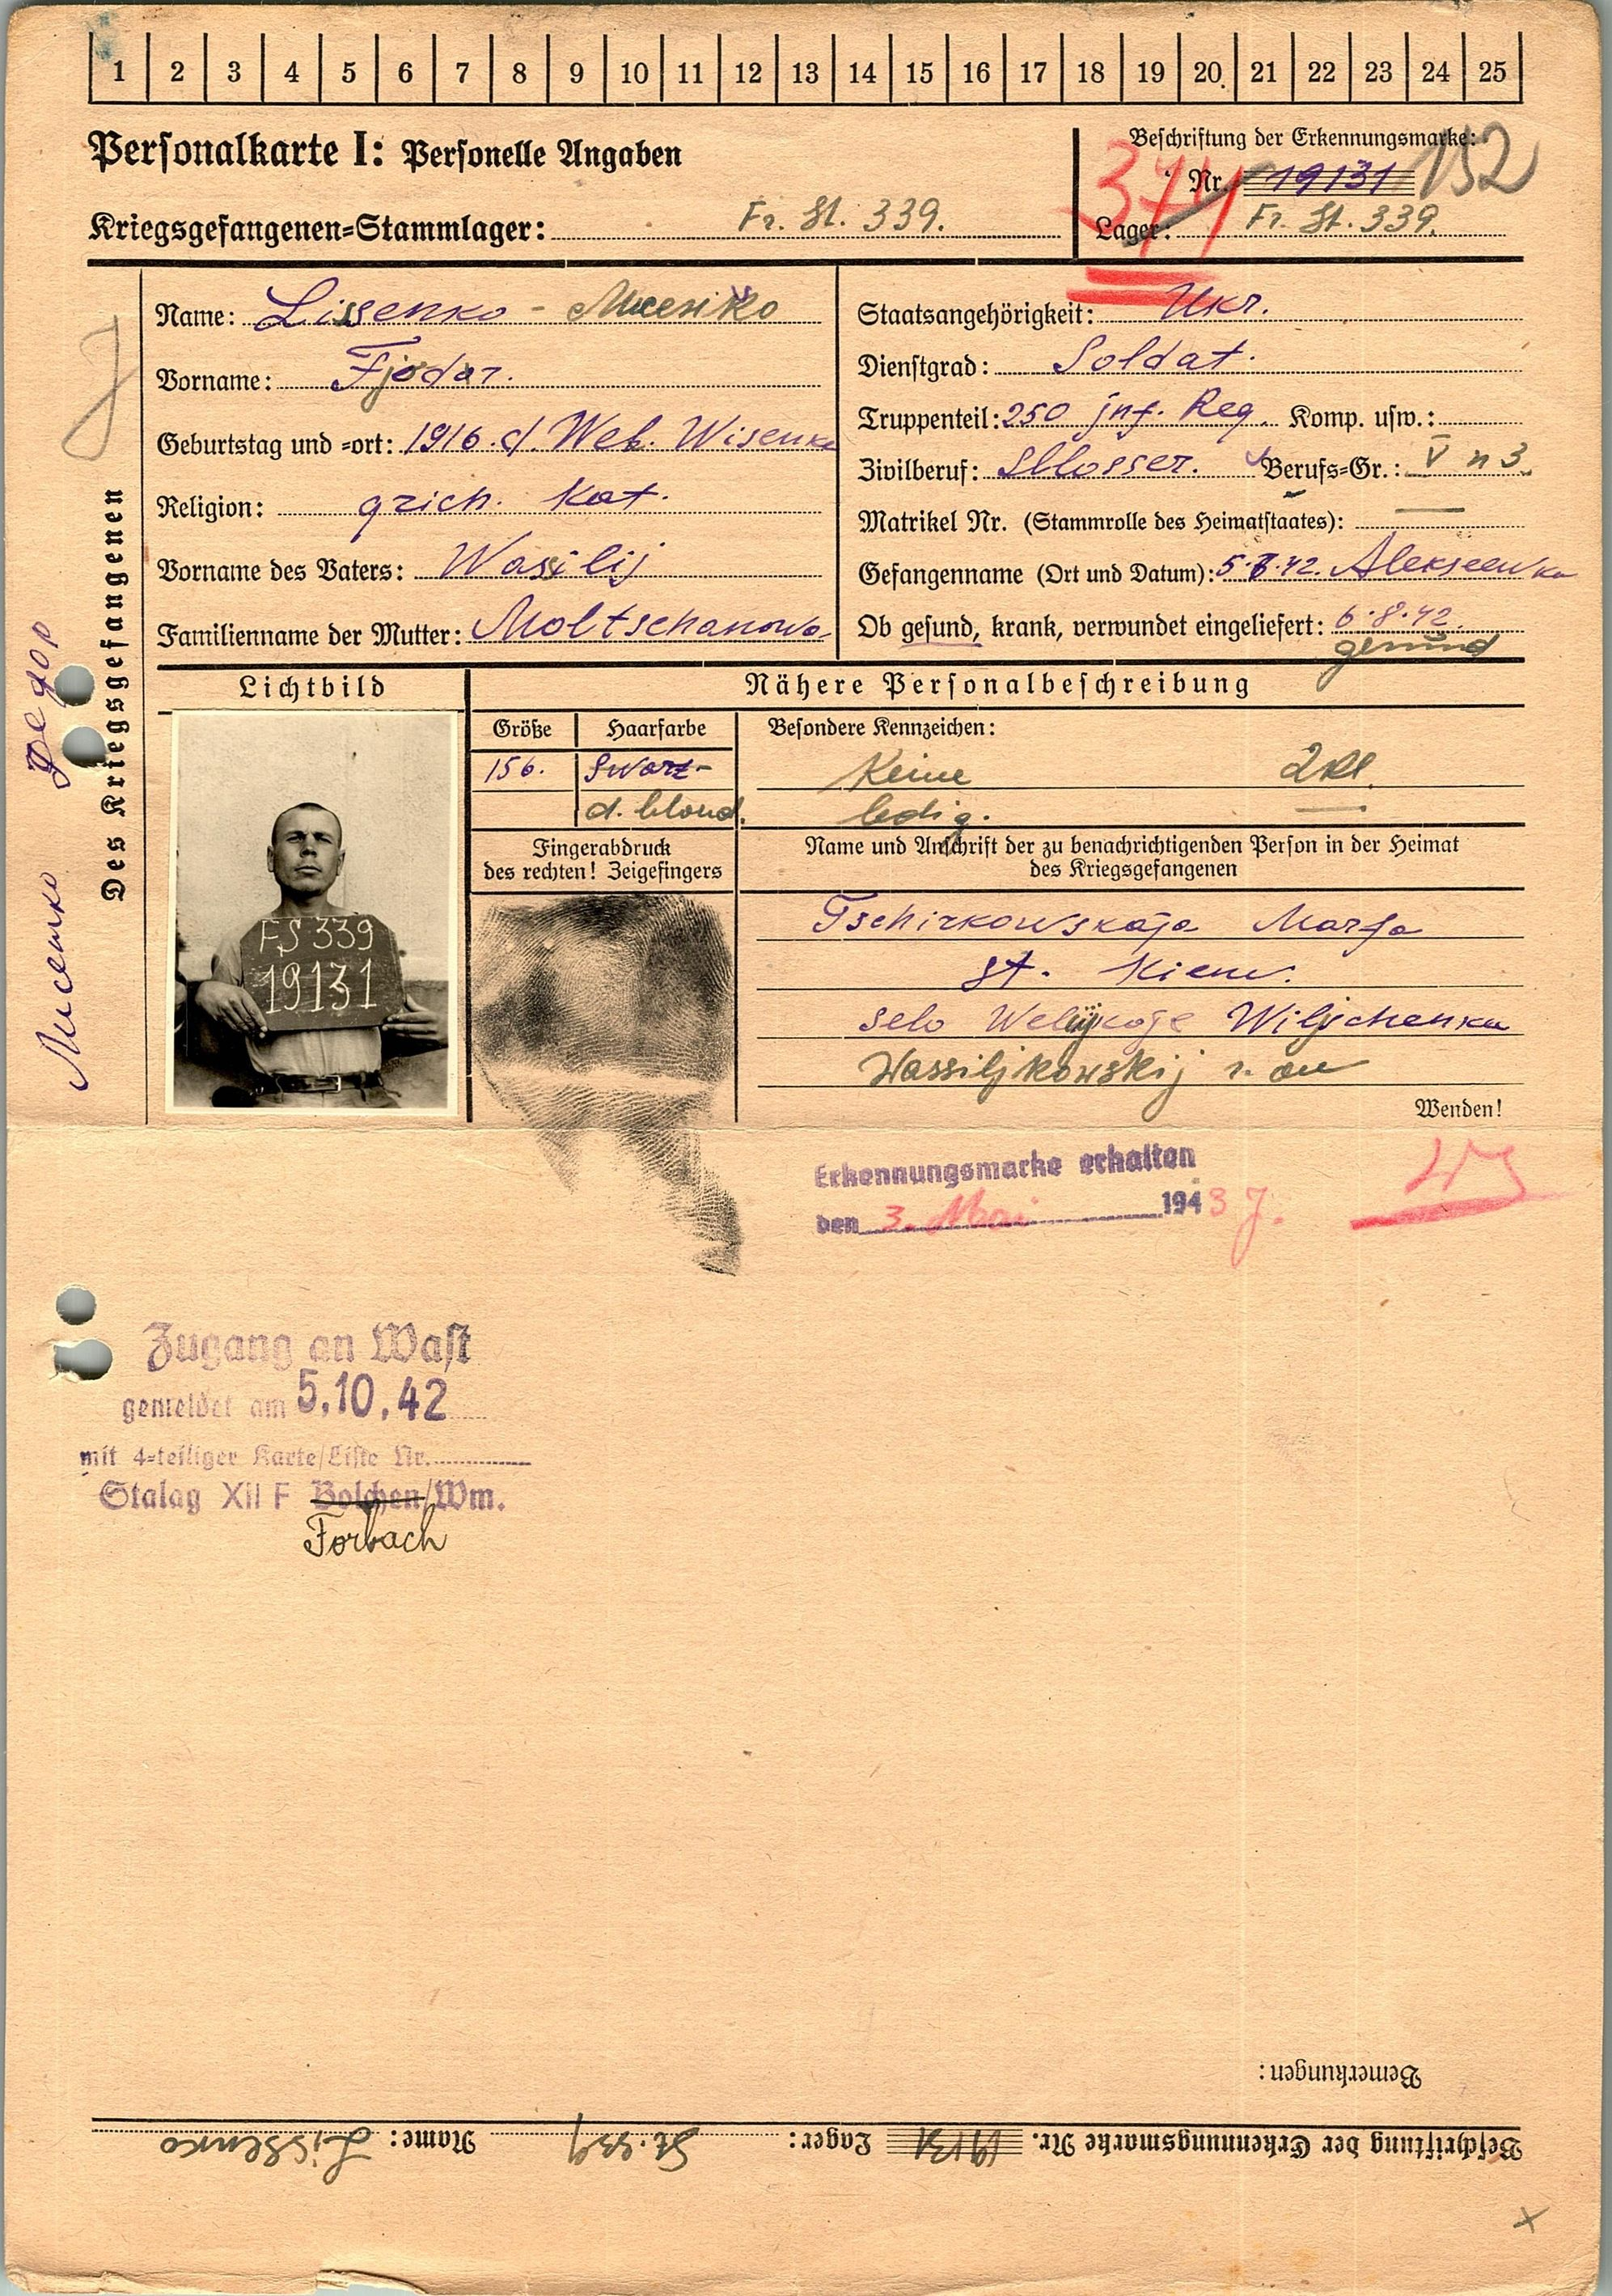 1 2 3 4 5 6 7 8 9 10 11 12 13 14 15 16 17 18 19 20 21 22 23 24 25
Personalkarte I: Personelle Angaben
Beschriftung der Erkennungsmarke:
Nr. 19131 152
Kriegsgefangenen=Stammlager: Fr. St. 339.
Lager: Fr. St. 339.
Des Kriegsgefangenen
Лисенко Федор
Name: Lissenko -
Vorname: Fjodor.
Geburtstag und =ort: 1916. d. Web. Wisenka
Religion: grich. Kat.
Vorname des Vaters: Wassilij
Familienname der Mutter: Moltschanowa
Staatsangehörigkeit: Ukr.
Dienstgrad: Soldat.
Truppenteil: 250 jnf. Reg. Komp. usw.:
Zivilberuf: Schlosser. Berufs=Gr.: V n 3.
Matrikel Nr. (Stammrolle des Heimatstaates): —
Gefangenname (Ort und Datum): 5.8.42. Alekseewka
Ob gesund, krank, verwundet eingeliefert: 6.8.42.
gesund
Lichtbild
FS 339
19131
Nähere Personalbeschreibung
Größe Haarfarbe Besondere Kennzeichen:
156. Swarz- Keine
d. blond. ledig. —
Fingerabdruck
des rechten! Zeigefingers
Name und Anschrift der zu benachrichtigenden Person in der Heimat
des Kriegsgefangenen
Tschirkowskaja Marfa
st. Kiew.
selo Welykoje Wilschenka
Wassiljkowskij r. on
Wenden!
Erkennungsmarke erhalten
den 3. Mai 1943 J.
Zugang an Wast
gemeldet am 5.10.42
mit 4=teiliger Karte/Liste Nr.
Stalag XII F Bolchen/Wm.
Forbach
Bemerkungen:
Beschriftung der Erkennungsmarke Nr. 19131 Lager: St. 339 Name: Lissenko